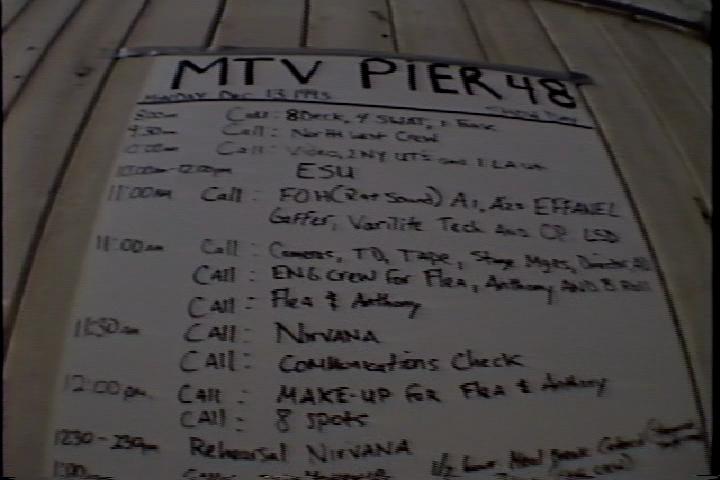 MTV PIER 48
MONDAY DEC 13 1993 Show Day
8:00am Call: 8 Deck, 4 SWAT,
9:30am Call: North West Crew
Call: Video, 2 NY UTS and 1 LA
10:00am - 12:00pm ESU
11:00am Call: FOH (2nd Sound) A1, A2s EFFANEL
Gaffer, Varilite Tech and OP. LSD
11:00am Call: Cameras, TD, Tape, Stage Mgrs, Director, AD
CALL: ENG CREW for Flea, Anthony AND B Roll
CALL: Flea & Anthony
11:30am CALL: NIRVANA
CALL: Communications Check
12:00pm CALL: MAKE-UP for Flea & Anthony
CALL: 8 Spots
1230 - 230pm Rehearsal NIRVANA
1:00 1/2 hour Meal Break